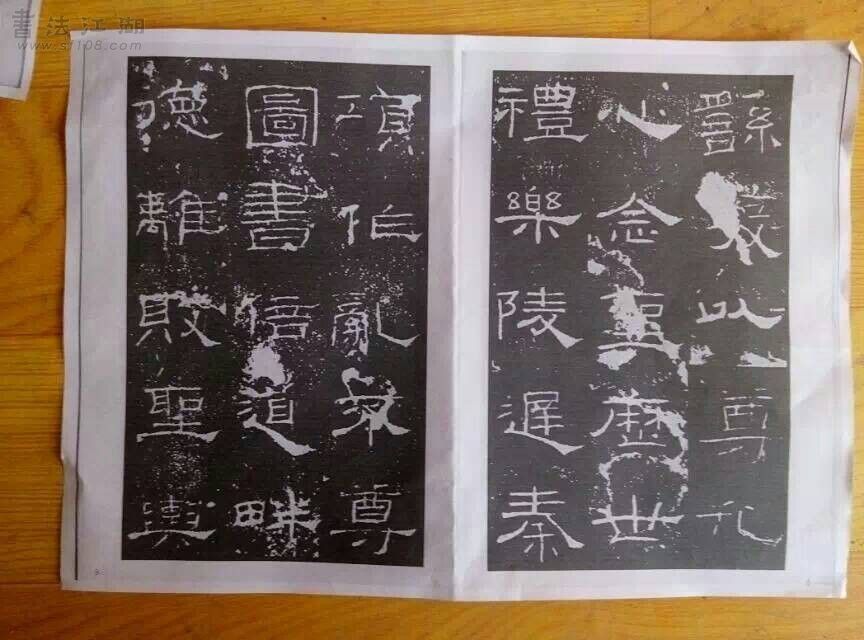 書法江湖
www.sf108.com
繇發以尊孔
心念聖歷世
禮樂陵遲秦
項作亂不尊
圖書倍道畔
德離敗聖輿